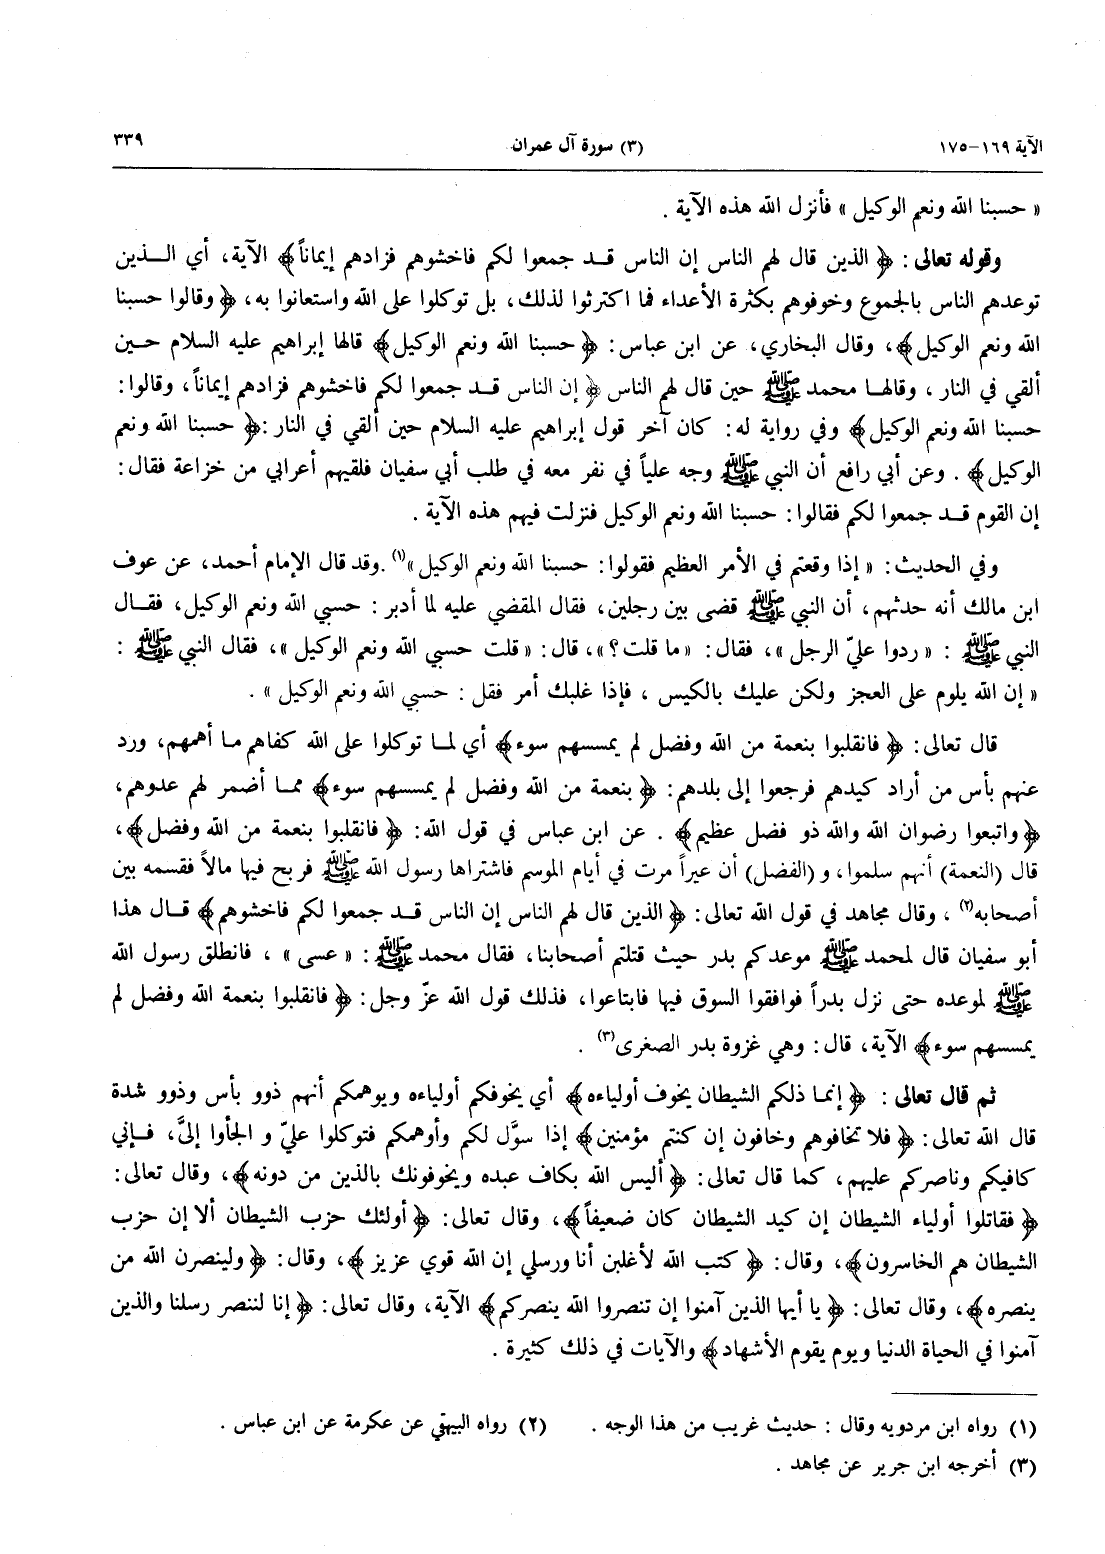 الآية ١٦٩-١٧٥ (٣) سورة آل عمران ٣٣٩
« حسبنا الله ونعم الوكيل » فأنزل الله هذه الآية .
وقوله تعالى : ﴿ الذين قال لهم الناس إن الناس قـد جمعوا لكم فاخشوهم فزادهم إيماناً﴾ الآية، أي الـــذين
توعدهم الناس بالجموع وخوفوهم بكثرة الأعداء فما اكترثوا لذلك، بل توكلوا على الله واستعانوا به، ﴿ وقالوا حسبنا
الله ونعم الوكيل﴾، وقال البخاري، عن ابن عباس: ﴿ حسبنا الله ونعم الوكيل﴾ قالها إبراهيم عليه السلام حـين
ألقي في النار ، وقالهـا محمد ﷺ حين قال لهم الناس ﴿ إن الناس قـد جمعوا لكم فاخشوهم فزادهم إيماناً، وقالوا:
حسبنا الله ونعم الوكيل﴾ وفي رواية له: كان آخر قول إبراهيم عليه السلام حين ألقي في النار :﴿ حسبنا الله ونعم
الوكيل﴾ . وعن أبي رافع أن النبي ﷺ وجه علياً في نفر معه في طلب أبي سفيان فلقيهم أعرابي من خزاعة فقال:
إن القوم قـد جمعوا لكم فقالوا: حسبنا الله ونعم الوكيل فنزلت فيهم هذه الآية .
وفي الحديث: « إذا وقعتم في الأمر العظيم فقولوا: حسبنا الله ونعم الوكيل »(١) .وقد قال الإمام أحمد، عن عوف
ابن مالك أنه حدثهم، أن النبي ﷺ قضى بين رجلين، فقال المقضي عليه لما أدبر : حسبي الله ونعم الوكيل، فقـــال
النبي ﷺ : « ردوا عليّ الرجل »، فقال: « ما قلت؟ »، قال: « قلت حسبي الله ونعم الوكيل »، فقال النبي ﷺ :
« إن الله يلوم على العجز ولكن عليك بالكيس ، فإذا غلبك أمر فقل : حسبي الله ونعم الوكيل » .
قال تعالى: ﴿ فانقلبوا بنعمة من الله وفضل لم يمسسهم سوء﴾ أي لمـا توكلوا على الله كفاهم مـا أهمهم، ورد
عنهم بأس من أراد كيدهم فرجعوا إلى بلدهم: ﴿ بنعمة من الله وفضل لم يمسسهم سوء﴾ ممـا أضمر لهم عدوهم،
﴿ واتبعوا رضوان الله والله ذو فضل عظيم﴾ . عن ابن عباس في قول الله: ﴿ فانقلبوا بنعمة من الله وفضل﴾،
قال (النعمة) أنهم سلموا، و (الفضل) أن عيراً مرت في أيام الموسم فاشتراها رسول الله ﷺ فربح فيها مالاً فقسمه بين
أصحابه(٢) ، وقال مجاهد في قول الله تعالى: ﴿ الذين قال لهم الناس إن الناس قـد جمعوا لكم فاخشوهم﴾ قـال هذا
أبو سفيان قال لمحمد ﷺ موعدكم بدر حيث قتلتم أصحابنا، فقال محمد ﷺ: « عسى » ، فانطلق رسول الله
ﷺ لموعده حتى نزل بدراً فوافقوا السوق فيها فابتاعوا، فذلك قول الله عزّ وجل: ﴿ فانقلبوا بنعمة الله وفضل لم
يمسسهم سوء﴾ الآية، قال: وهي غزوة بدر الصغرى(٣) .
ثم قال تعالى : ﴿ إنمـا ذلكم الشيطان يخوف أولياءه﴾ أي يخوفكم أولياءه ويوهمكم أنهم ذوو بأس وذوو شدة
قال الله تعالى: ﴿ فلا تخافوهم وخافون إن كنتم مؤمنين﴾ إذا سوَّل لكم وأوهمكم فتوكلوا عليّ و الجأوا إليَّ، فـإني
كافيكم وناصركم عليهم، كما قال تعالى: ﴿ أليس الله بكاف عبده ويخوفونك بالذين من دونه﴾، وقال تعالى:
﴿ فقاتلوا أولياء الشيطان إن كيد الشيطان كان ضعيفاً﴾، وقال تعالى: ﴿ أولئك حزب الشيطان ألا إن حزب
الشيطان هم الخاسرون﴾، وقال: ﴿ كتب الله لأغلبن أنا ورسلي إن الله قوي عزيز ﴾، وقال: ﴿ ولينصرن الله من
ينصره﴾، وقال تعالى: ﴿ يا أيها الذين آمنوا إن تنصروا الله ينصركم﴾ الآية، وقال تعالى: ﴿ إنا لننصر رسلنا والذين
آمنوا في الحياة الدنيا ويوم يقوم الأشهاد﴾ والآيات في ذلك كثيرة .
(١) رواه ابن مردويه وقال : حديث غريب من هذا الوجه . (٢) رواه البيهقي عن عكرمة عن ابن عباس .
(٣) أخرجه ابن جرير عن مجاهد .